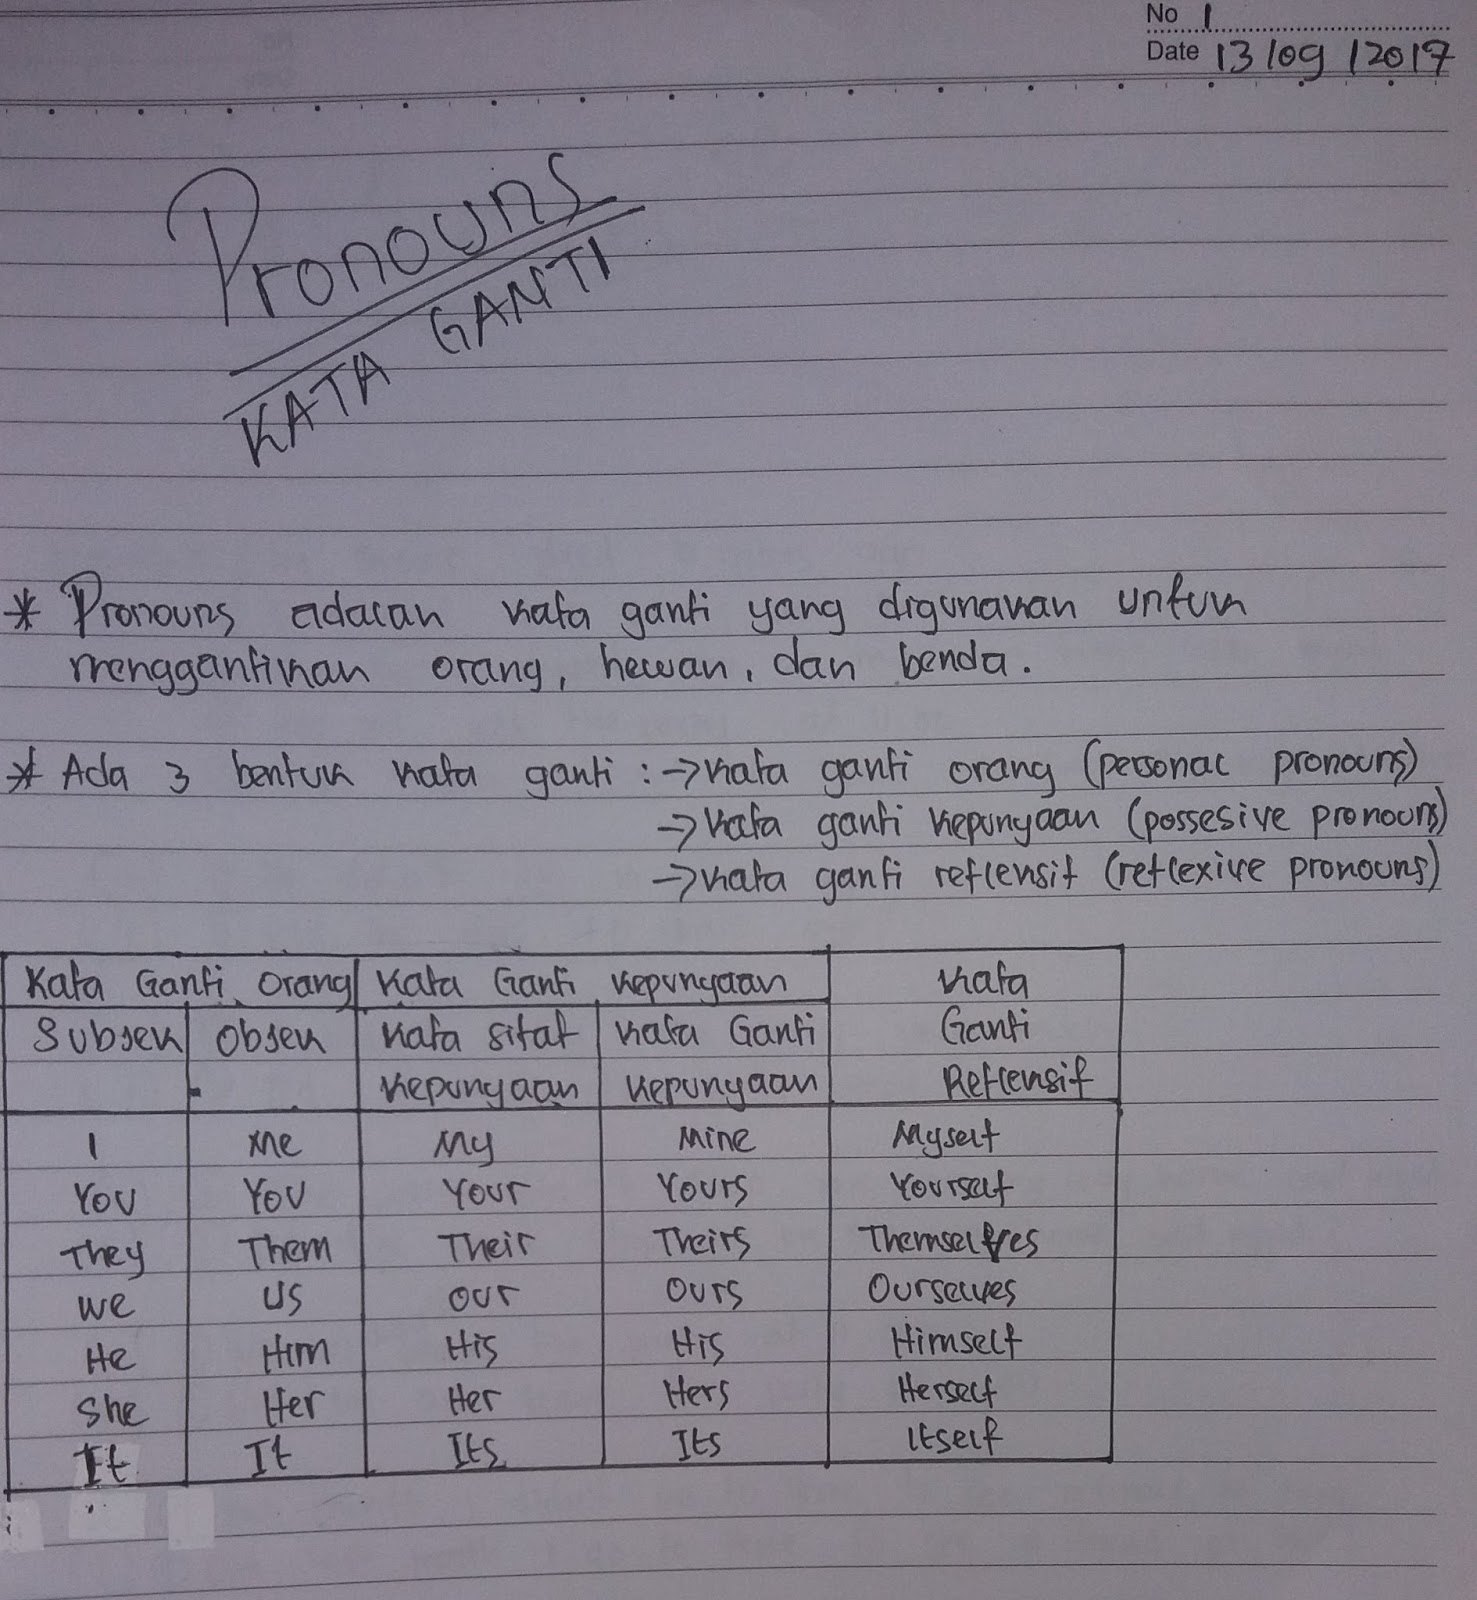 No 1
Date 13/09/2017
Pronouns
KATA GANTI
* Pronouns adalah kata ganti yang digunakan untuk
menggantikan orang, hewan, dan benda.
* Ada 3 bentuk kata ganti : → kata ganti orang (personal pronouns)
→ kata ganti kepunyaan (possesive pronouns)
→ kata ganti refleksif (reflexive pronouns)
Kata Ganti Orang Kata Ganti kepunyaan Kata
Subjek Objek Kata sifat Kata Ganti Ganti
Kepunyaan Kepunyaan Refleksif
I Me My Mine Myself
You You Your Yours Yourself
They Them Their Theirs Themselves
We Us Our Ours Ourselves
He Him His His Himself
She Her Her Hers Herself
It It Its Its Itself